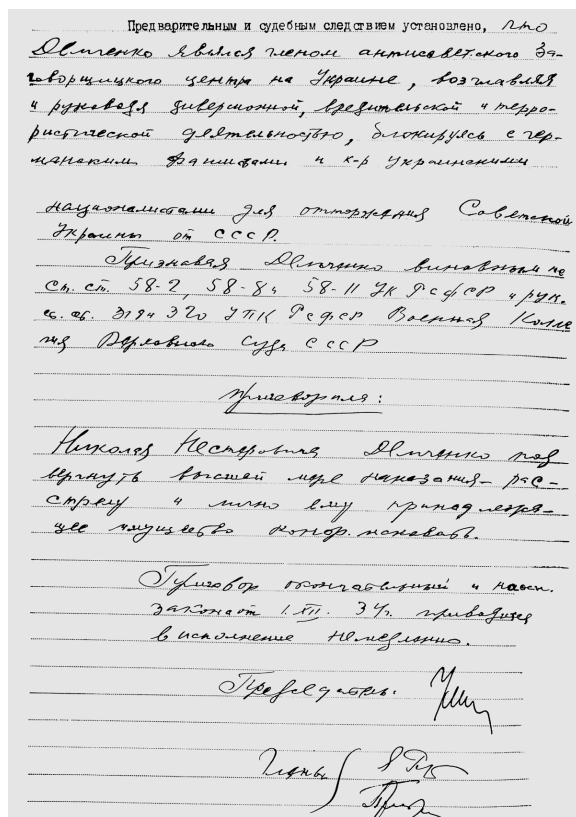 Предварительным и судебным следствием установлено, что
Демченко являлся членом антисоветского За-
говорщицкого центра на Украине, возглавляя
и руководя диверсионной, вредительской и терро-
ристической деятельностью, блокируясь с гер-
манскими фашистами и к-р украинскими
националистами для отторжения Советской
Украины от СССР.
Признавая Демченко виновным по
ст. ст. 58-7, 58-8 и 58-11 УК РСФСР и рук.
ст. ст. 319 и 320 УПК РСФСР Военная Колле
гия Верховного Суда СССР
приговорила:
Николая Нестеровича Демченко под
вергнуть высшей мере наказания – рас-
стрелу и лично ему принадлежа-
щее имущество конфисковать.
Приговор окончательный и на осн.
закона от 1.XII.34г. приводится
в исполнение немедленно.
Председатель:
Члены